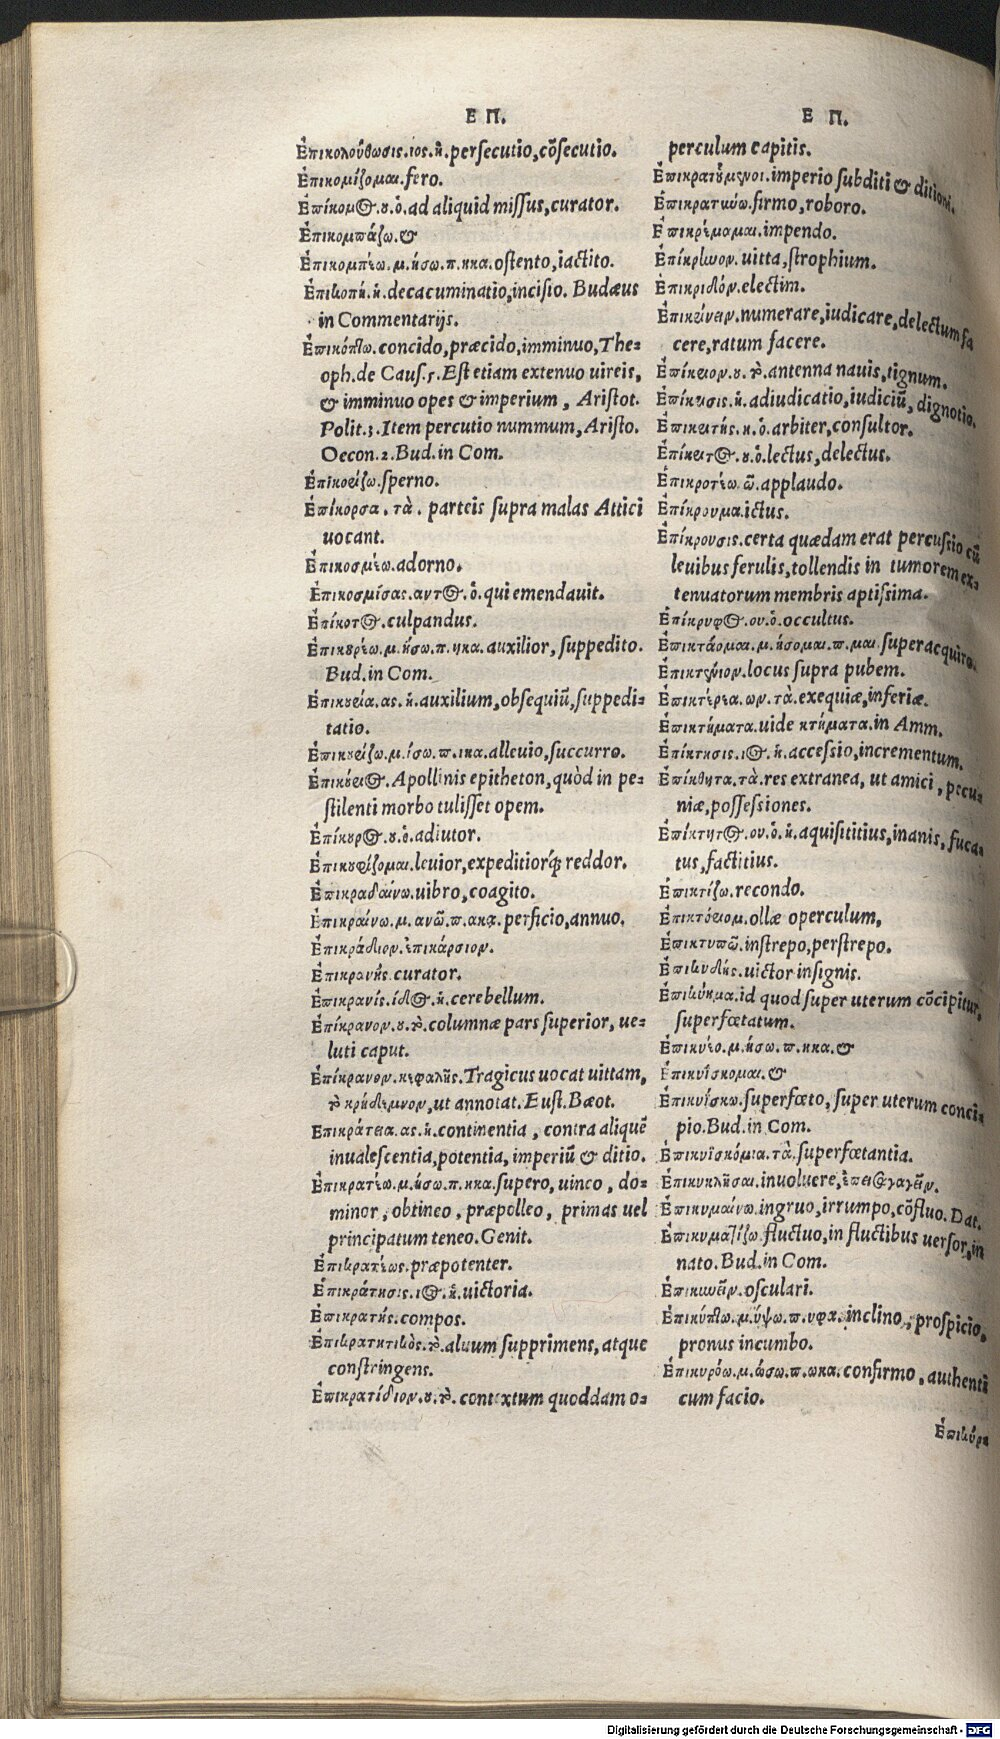 Ε Π.
Ἐπικολούθωσις.ιος.ἡ.persecutio,cõsecutio.
Ἐπικομίζομαι.fero.
Ἐπίκομος.ου.ὁ.ad aliquid missus,curator.
Ἐπικομπάζω.&
Ἐπικομπέω.μ.ήσω.π.ηκα.ostento,iactito.
Ἐπικοπή.ἡ.decacuminatio,incisio. Budæus
in Commentarijs.
Ἐπικόπτω.concido,præcido,imminuo,The=
oph.de Caus.5.Est etiam extenuo uireis,
& imminuo opes & imperium, Aristot.
Polit.3.Item percutio nummum,Aristo.
Oecon.2.Bud.in Com.
Ἐπικορίζω.sperno.
Ἐπίκορσα.τὰ. parteis supra malas Attici
uocant.
Ἐπικοσμέω.adorno.
Ἐπικοσμίσας.αντος.ὁ.qui emendauit.
Ἐπίκοτος.culpandus.
Ἐπικουρέω.μ.ήσω.π.ηκα.auxilior, suppedito.
Bud.in Com.
Ἐπικουρία.ας.ἡ.auxilium,obsequiũ,suppedi=
tatio.
Ἐπικουρίζω.μ.ίσω.π.ικα.alleuio,succurro.
Ἐπικούριος.Apollinis epitheton,quòd in pe=
stilenti morbo tulisset opem.
Ἐπίκουρος.ου.ὁ.adiutor.
Ἐπικουφίζομαι.leuior,expeditiorq́; reddor.
Ἐπικραδαίνω.uibro,coagito.
Ἐπικραίνω.μ.ανῶ.π.ακα.perficio,annuo.
Ἐπικράδιον.ἐπικάρσιον.
Ἐπικρανής.curator.
Ἐπικρανίς.ίδος.ἡ.cerebellum.
Ἐπίκρανον.ου.τὸ.columnæ pars superior, ue=
luti caput.
Ἐπίκρανον.κεφαλῆς.Tragicus uocat uittam,
τὸ κρήδεμνον,ut annotat.Eust.Bœot.
Ἐπικράτεια.ας.ἡ.continentia, contra aliquẽ
inualescentia,potentia, imperiũ & ditio.
Ἐπικρατέω.μ.ήσω.π.ηκα.supero, uinco, do=
minor, obtineo, præpolleo, primas uel
principatum teneo.Genit.
Ἐπικρατέως.præpotenter.
Ἐπικράτησις.ιος.ἡ.uictoria.
Ἐπικρατής.compos.
Ἐπικρατητικὸς.τὸ.aluum supprimens, atque
constringens.
Ἐπικρατίδιον.ου.τὸ.contextum quoddam o=
Ε Π.
perculum capitis.
Ἐπικρατούμενοι.imperio subditi & ditioni.
Ἐπικρατύνω.firmo,roboro.
Ἐπικρέμαμαι.impendo.
Ἐπίκρηνον.uitta,strophium.
Ἐπικριδόν.electim.
Ἐπικρίνειν.numerare,iudicare,delectum fa
cere,ratum facere.
Ἐπίκριον.ου.τὸ.antenna nauis,tignum.
Ἐπίκρισις.ἡ.adiudicatio,iudiciũ, dignotio.
Ἐπικριτής.η.ὁ.arbiter,consultor.
Ἐπίκριτος.ου.ὁ.lectus,delectus.
Ἐπικροτέω.ῶ.applaudo.
Ἐπίκρουμα.ictus.
Ἐπίκρουσις.certa quædam erat percussio cũ
leuibus ferulis,tollendis in tumorem ex=
tenuatorum membris aptissima.
Ἐπίκρυφος.ου.ὁ.occultus.
Ἐπικτάομαι.μ.ήσομαι.π.μαι.superacquiro.
Ἐπικτένιον.locus supra pubem.
Ἐπικτέρεα.ων.τὰ.exequiæ,inferiæ.
Ἐπικτήματα.uide κτήματα.in Amm.
Ἐπίκτησις.ιος.ἡ.accessio,incrementum.
Ἐπίκθητα.τὰ.res extranea, ut amici, pecu=
niæ,possessiones.
Ἐπίκτητος.ου.ὁ.ἡ.aquisititius,inanis,fuca=
tus,factitius.
Ἐπικτίζω.recondo.
Ἐπικτόριομ.ollæ operculum,
Ἐπικτυπῶ.instrepo,perstrepo.
Ἐπικυδής.uictor insignis.
Ἐπικύημα.id quod super uterum cõcipitur,
superfœtatum.
Ἐπικυέο.μ.ήσω.π.ηκα.&
Ἐπικυΐσκομαι.&
Ἐπικυΐσκω.superfœto, super uterum conci=
pio.Bud.in Com.
Ἐπικυϊσκόμενα.τὰ.superfœtantia.
Ἐπικυκλῆσαι.inuoluere,
Ἐπικυμαίνω.ingruo,irrumpo,cõfluo.Dat.
Ἐπικυματίζω.fluctuo,in fluctibus uersor,in
nato.Bud.in Com.
Ἐπικυνεῖν.osculari.
Ἐπικύπτω.μ.ύψω.π.υφα.inclino, prospicio,
pronus incumbo.
Ἐπικυρόω.μ.ώσω.π.ωκα.confirmo, authenti
cum facio.
Ἐπικύρ=
Digitalisierung gefördert durch die Deutsche Forschungsgemeinschaft - DFG